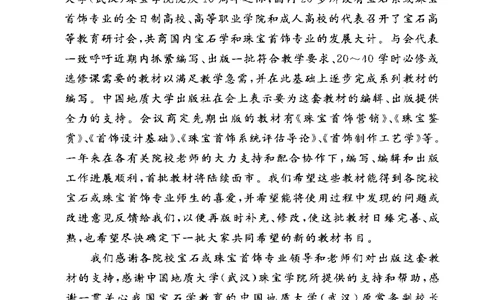 首饰专业的全日制高校、高等职业学院和成人高校的代表召开了宝石高
等教育研讨会，共商国内宝石学和珠宝首饰专业的发展大计。与会代表
一致呼吁近期内抓紧编写、出版一批符合教学要求、20～40学时必修或
选修课需要的教材以满足教学急需，并在此基础上逐步完成系列教材的
编写。中国地质大学出版社在会上表示要为这套教材的编辑、出版提供
全力的支持。会议商定先期出版的教材有《珠宝首饰营销》、《珠宝鉴
赏》、《首饰设计基础》、《珠宝首饰系统评估导论》、《首饰制作工艺学》等。
一年来在各有关院校老师的大力支持和配合协作下，编写、编辑和出版
工作进展顺利，首批教材将陆续面市。我们希望这些教材能得到各院校
宝石或珠宝首饰专业师生的喜爱，并希望能将使用过程中发现的问题或
改进意见反馈给我们，以便再版时补充、修改，使这批教材日臻完善、成
熟，也希望尽快确定下一批大家共同希望的新的教材书目。
我们感谢各院校宝石或珠宝首饰专业领导和老师们对出版这套教
材的支持，感谢中国地质大学（武汉）珠宝学院所提供的支持和帮助，感
谢一贯关心我国宝石学教育的中国地质大学（武汉）原常务副校长